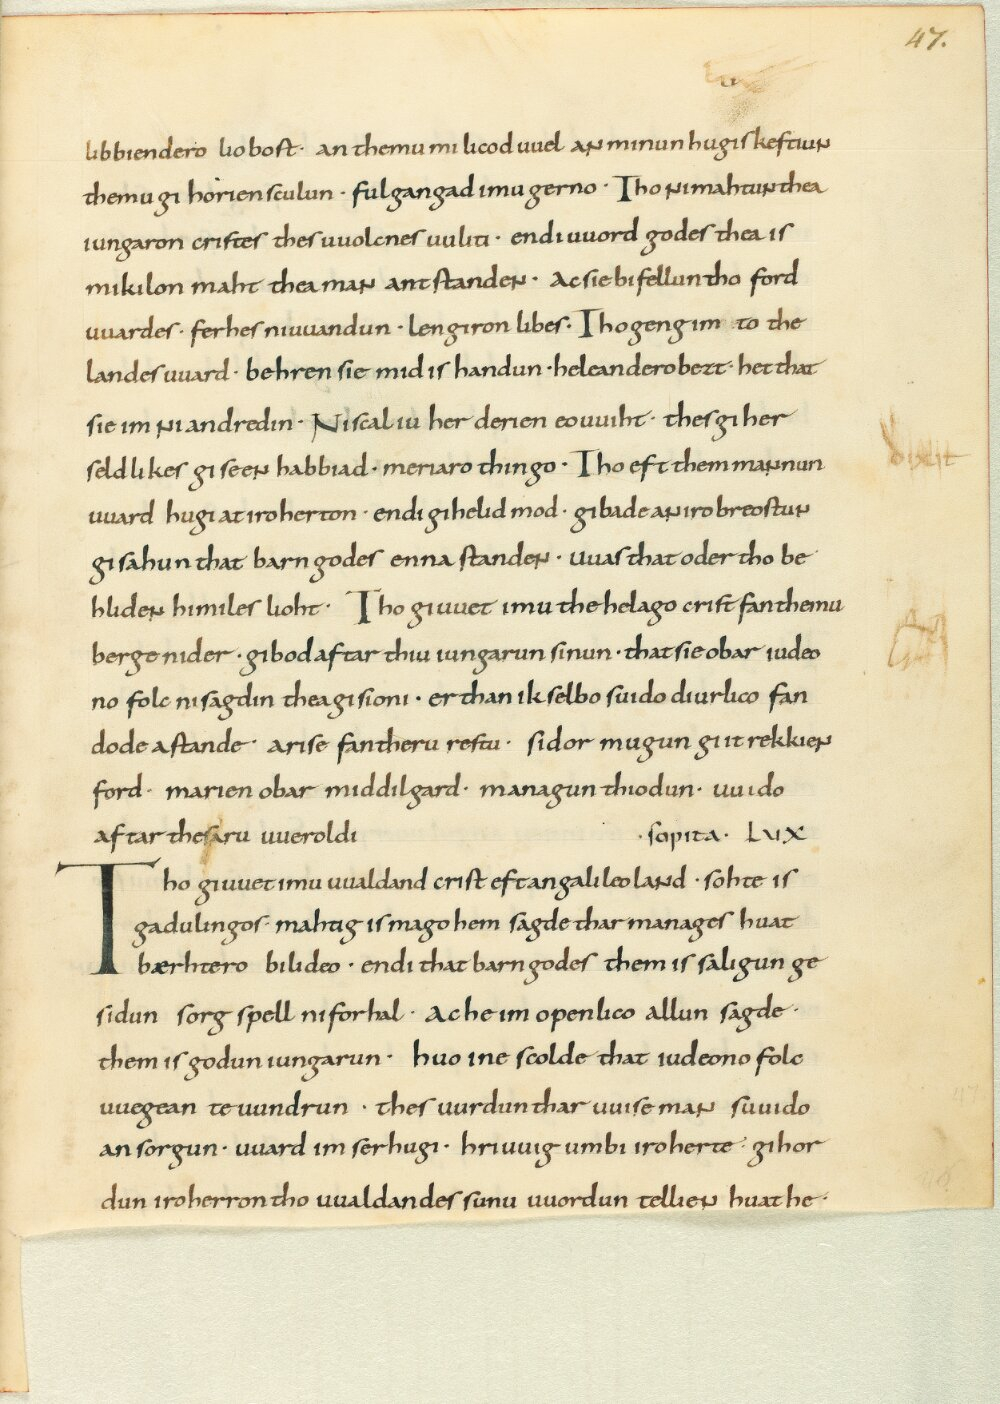 47.
libbiendero liobost · an themu mi licod uuel an minun hugiskeftiun
themu gi horien sculun · fulgangad imu gerno · Tho ni mahtun thea
iungaron cristes thes uuolcnes uuliti · endi uuord godes thea is
mikilon maht thea man antstanden · Ac sie bifellun tho ford
uuardes · ferhes ni uuandun · lengiron libes · Tho geng im to the
landes uuard · behren sie mid is handun · heleandero bezt · het that
sie im ni andredin · Ni scal iu her derien eouuiht · thes gi her
seldlikes giseen habbiad · meriaro thingo · Tho eft them mannun
uuard hugi at iro herton · endi gihelid mod · gibade an iro breostun
gisahun that barn godes enna standen · uuas that oder tho be
hliden himiles lioht · Tho giuuet imu the helago crist fan themu
berge nider · gibod aftar thiu iungarun sinun · that sie obar iudeo
no folc ni sagdin thea gisioni · er than ik selbo suido diurlico fan
dode astande · arise fan theru restu · sidor mugun gi it rekkien
ford · marien obar middilgard · managun thiodun · uuido
aftar thesaru uueroldi · sopita · LUX
Tho giuuet imu uualdand crist eft an galileo land · sohte is
gadulingos mahtig is mago hem sagde thar manages huat
bærhtero bilideo · endi that barn godes them is saligun ge
sidun sorgspell ni forhal · Ac he im openlico allun sagde ·
them is godun iungarun · huo ine scolde that iudeono folc
uuegean te uundrun · thes uurdun thar uuise man suuido
an sorgun · uuard im ser hugi · hriuuig umbi iro herte · gihor
dun iro herron tho uualdandes sunu uuordun tellien huat he ·